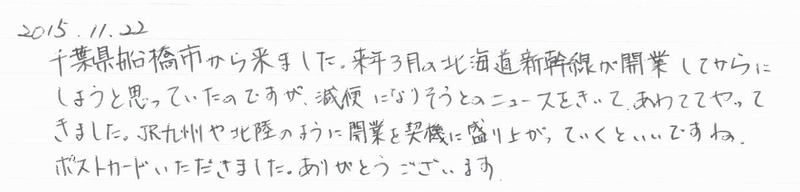 2015.11.22
千葉県船橋市から来ました。来年3月の北海道新幹線が開業してからに
しようと思っていたのですが、減便になりそうとのニュースをきいて、あわててやって
きました。JR九州や北陸のように開業を契機に盛り上がっていくといいですね。
ポストカードいただきました。ありがとうございます